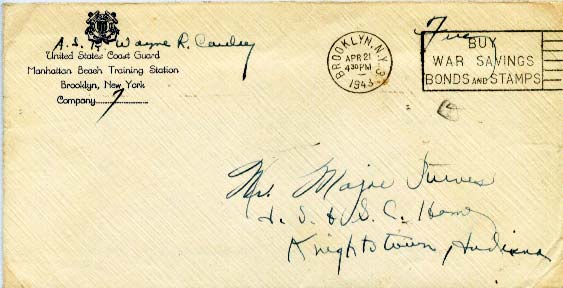 A.S. Wayne R.
United States Coast Guard
Manhattan Beach Training Station
Brooklyn, New York
Company 7
BROOKLYN, N.Y. 3
APR 21
4 30 PM
1943
Free
BUY
WAR SAVINGS
BONDS AND STAMPS
Mr. Major
I. S. & S. C. Home
Knightstown, Indiana